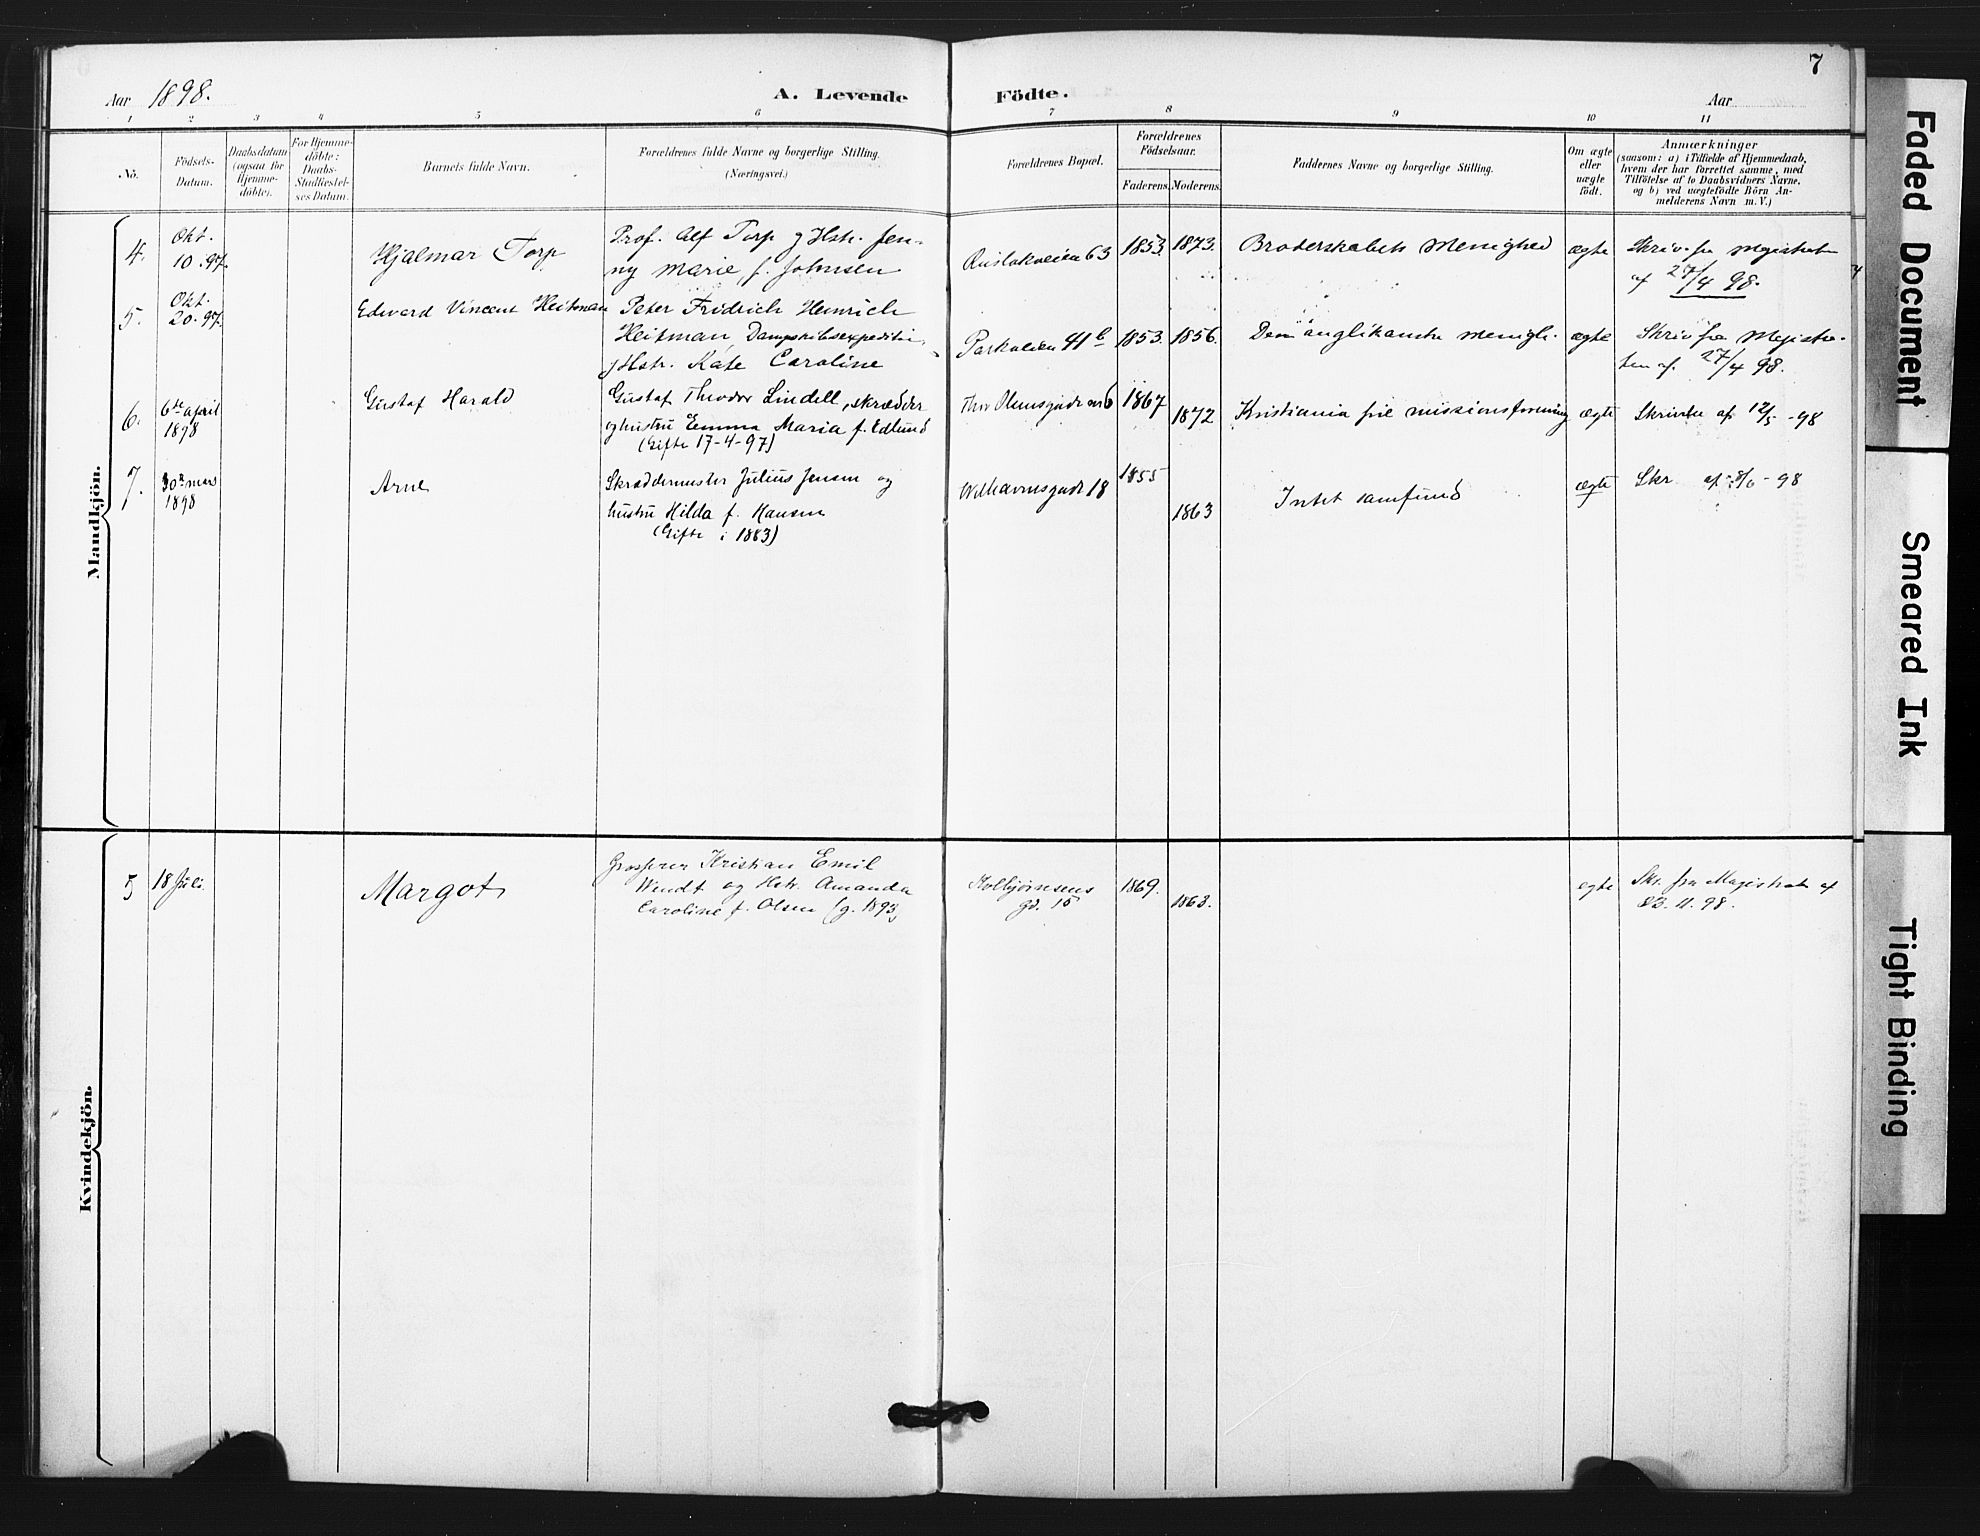 7
Aar 1898.
A. Levende Födte.
Aar
1 2 3 4 5 6 7 8 9 10 11
No.
Födsels-
Datum.
Daabsdatum
(ogsaa for
Hjemme-
döbte).
For Hjemme-
döbte:
Daabs-
Stadfæstel-
ses Datum.
Barnets fulde Navn.
Forældrenes fulde Navne og borgerlige Stilling.
(Næringsvei.)
Forældrenes Bopæl.
Forældrenes
Födselsaar.
Faderens. Moderens.
Faddernes Navne og borgerlige Stilling.
Om ægte
eller
uægte
födt.
Anmærkninger
(saasom: a) i Tilfælde af Hjemmedaab,
hvem der har forrettet samme, med
Tilföielse af to Daabsvidners Navne,
og b) ved uægtefödte Börn An-
melderens Navn m. V.)
Mandkjön.
4.
Okt.
10.97.
Hjalmar Torp
Prof. Alf Torp g Hstr. Jen-
ny Marie f. Johnsen
63
1853. 1873.
Broderskabets Menighed
ægte
Skriv. fra Magistraten
af 27/4 98.
5.
Okt.
20.97.
Edward Vincent Heitman
Peter Fridrich Heinrich
Heitman, Dampskibsexpeditør
g Hstr. Kate Caroline
Parkveien 41b
1853. 1856.
Den anglikanske menigh.
ægte
Skriv fra Magistra-
ten af 27/4 98.
6.
6te april
1898
Gustaf Harald
Gustaf Theodor Lindell, skrædder
og hustru Emma Maria f. Edlund
(Gifte 17-4-97)
Thv Olsensgade nr 6
1867
1872
Kristiania frie missionsforening
ægte
Skrivelse af 12/5 -98
7.
30te mars
1898
Arne
Skræddermester Julius Jensen og
hustru Hilda f. Hansen
(Gifte i 1883)
Welhavensgade 18
1855
1863
Intet samfund
ægte
Skr. af 8/6 -98
Kvindekjön.
5
18 Juli.
Margot
Grosserer Kristian Emil
Wendt og Hstr. Amanda
Caroline f. Olsen (g. 1893)
Kolbjørnsens
gd. 15
1869.
1863.
ægte
Skr. fra Magistraten af
23. 11. 98.
Faded Document
Smeared Ink
Tight Binding